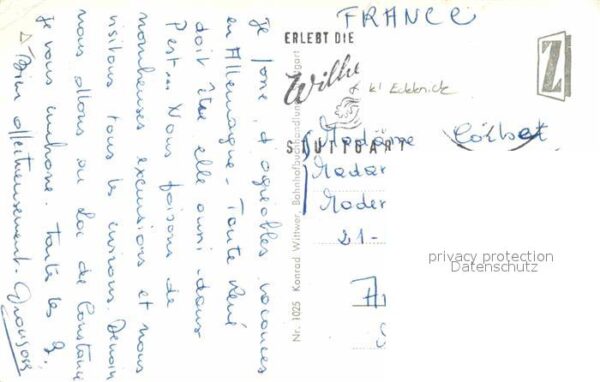 FRANCE
ERLEBT DIE
Wilhe
STUTTGART
Z
Madame
Mader
21-
Je passe, d'agréables vacances
en Allemagne. Toute
doit être elle aussi dans
l'est... Nous faisons de
nombreuses excursions et nous
visitons tous les environs. Demain
nous allons au Lac de Constance
Je vous embrasse. toutes les 2.
Bien affectueusement. Françoise
Nr. 1025 Konrad Wittwer, Bahnhofbuchhandlung
privacy protection
Datenschutz